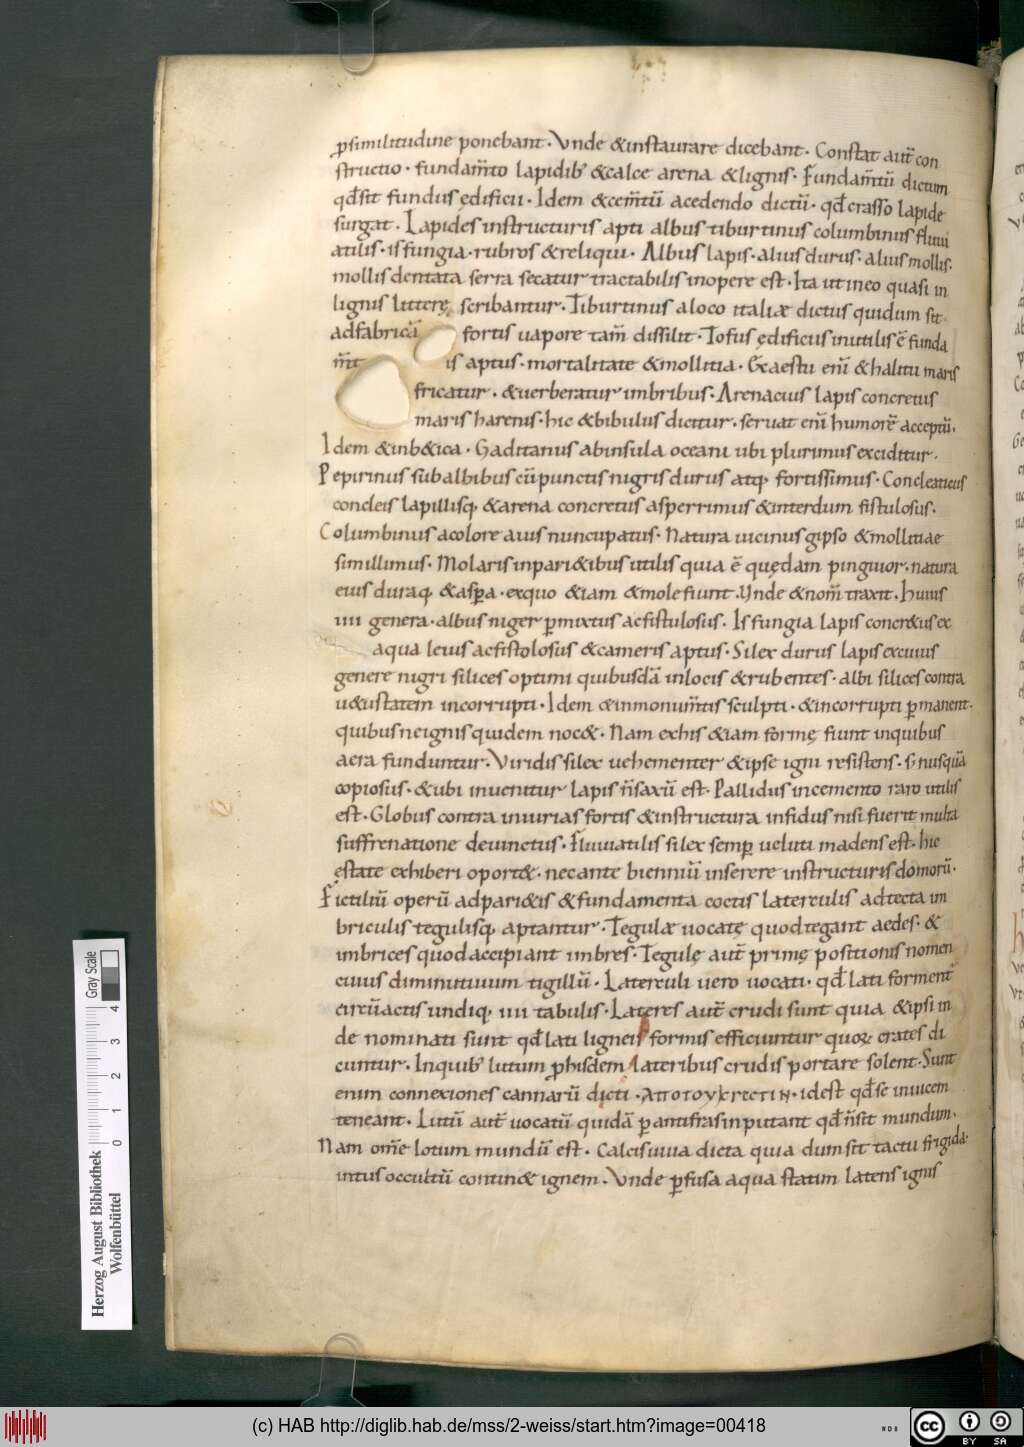 ꝑsimilitudine ponebant · Vnde &instaurare dicebant · Constat aut̄ con
structio · fundam̄to lapidib; &calce arena &lignis · Fundam̄tū dictum
qđ sit fundus ędificii · Idem &cem̄tū acedendo dictū · qđ crasso lapide
surgat · Lapides instructuris apti albus tiburtinus columbinus fluui
atilis · isfungia · rubros &reliqui · Albus lapis · alius durus · alius mollis ·
mollis dentata serra secatur tractabilis inopere est · Ita ut ineo quasi in
lignis litterę scribantur · Tiburtinus aloco italiæ dictus quidum sit ·
adfabricā fortis uapore tam̄ dissilit · Tofus ędificiis inutilis ē funda
m̄t is aptus · mortalitate &mollitia · Exaestu enī &halitu maris
fricatur · &uerberatur imbribus · Arenacius lapis concretus
maris harenis · hic &bibulus dicitur · seruat enī humorē acceptū ·
Idem &inb&ica · Gaditanus abinsula oceani ubi plurimus exciditur ·
Pepirinus subalbibus cū punctis nigris durus atq; fortissimus · Concleaticus
concleis lapillisq; &arena concretus asperrimus &interdum fistulosus ·
Columbinus acolore auis nuncupatus · Natura uicinus gipso &mollitiae
simillimus · Molaris inpari&ibus utilis quia ē quędam pinguior · natura
eius duraq; &asꝑa · exquo &iam &mole fiunt · Unde &nom̄ traxit · huius
IIII genera · albus niger ꝑmixtus acfistulosus · Is fungia lapis concr&us ex
aqua leuis acfistolosus &cameris aptus · Silex durus lapis excuius
genere nigri silices optimi quibusdā inlocis &rubentes · albi silices contra
u&ustatem incorrupti · Idem &inmonum̄tis sculpti · &incorrupti ꝑmanent ·
quibus neignis quidem noc& · Nam exhis &iam formę fiunt inquibus
aera funduntur · Viridis silex uehementer &ipse igni resistens · s; nusquā
copiosus · &ubi inuenitur lapis n̄ saxū est · Pallidus incemento raro utilis
est · Globus contra iniurias fortis &instructura infidus nisi fuerit multa
suffrenatione deuinctus · Fluuiatilis silex semꝑ ueluti madens est · hic
ęstate exhiberi oport& · necante bienniū inserere instructuris domorū ·
Fictiliū operū adpari&is &fundamenta coctis laterculis adtecta im
briculis tegulisq; aptantur · Tegulæ uocatę quodtegant aedes · &
imbrices quod accipiant imbres · Tegulę aut̄ primę positionis nomen
cuius diminutiuum tigillū · Laterculi uero uocati · qđ lati forment̄
circūactis undiq; IIII tabulis · Lateres aut̄ crudi sunt quia &ipsi in
de nominati sunt qđ lati ligneis formis efficiuntur quorꝫ crates di
cuntur · Inquib; lutum ꝓhisdem lateribus crudis portare solent · Sunt
enim connexiones cannarū dicti · ΑΠΟΤΟΥΚΡΕΤΕΙΝ · idest qđ se inuicem
teneant · Lutū aut̄ uocatū quidā ꝑantifrasin putant qđ n̄ sit mundum ·
Nam om̄e lotum mundū est · Calcis uiua dicta quia dum sit tactu frigida ·
intus occultū contin& ignem · Vnde ꝑfusa aqua statim latens ignis
Herzog August Bibliothek
Wolfenbüttel
0 1 2 3 4
Gray Scale
(c) HAB http://diglib.hab.de/mss/2-weiss/start.htm?image=00418
cc BY SA